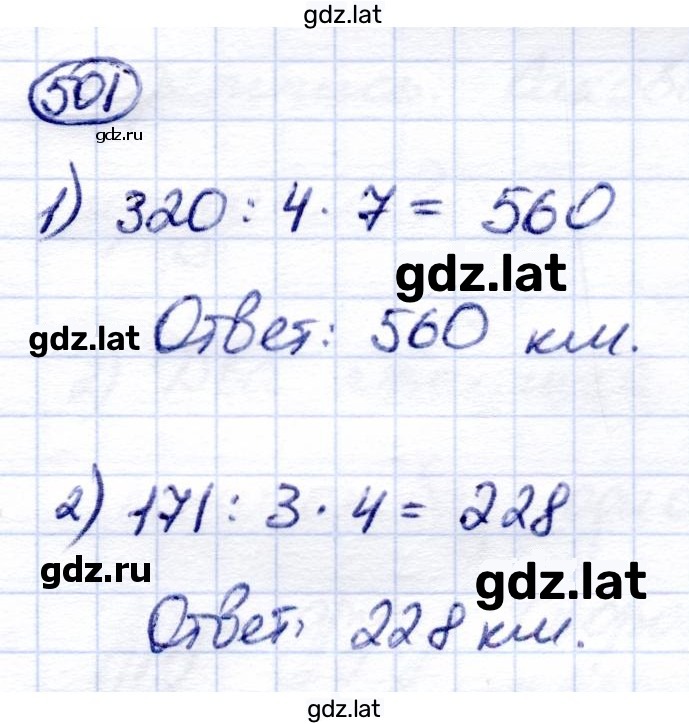 gdz.lat
501
gdz.ru
1) 320 : 4 · 7 = 560
gdz.lat
gdz.lat
Ответ: 560 км.
2) 171 : 3 · 4 = 228
gdz.ru
gdz.lat
Ответ: 228 км.
gdz.lat